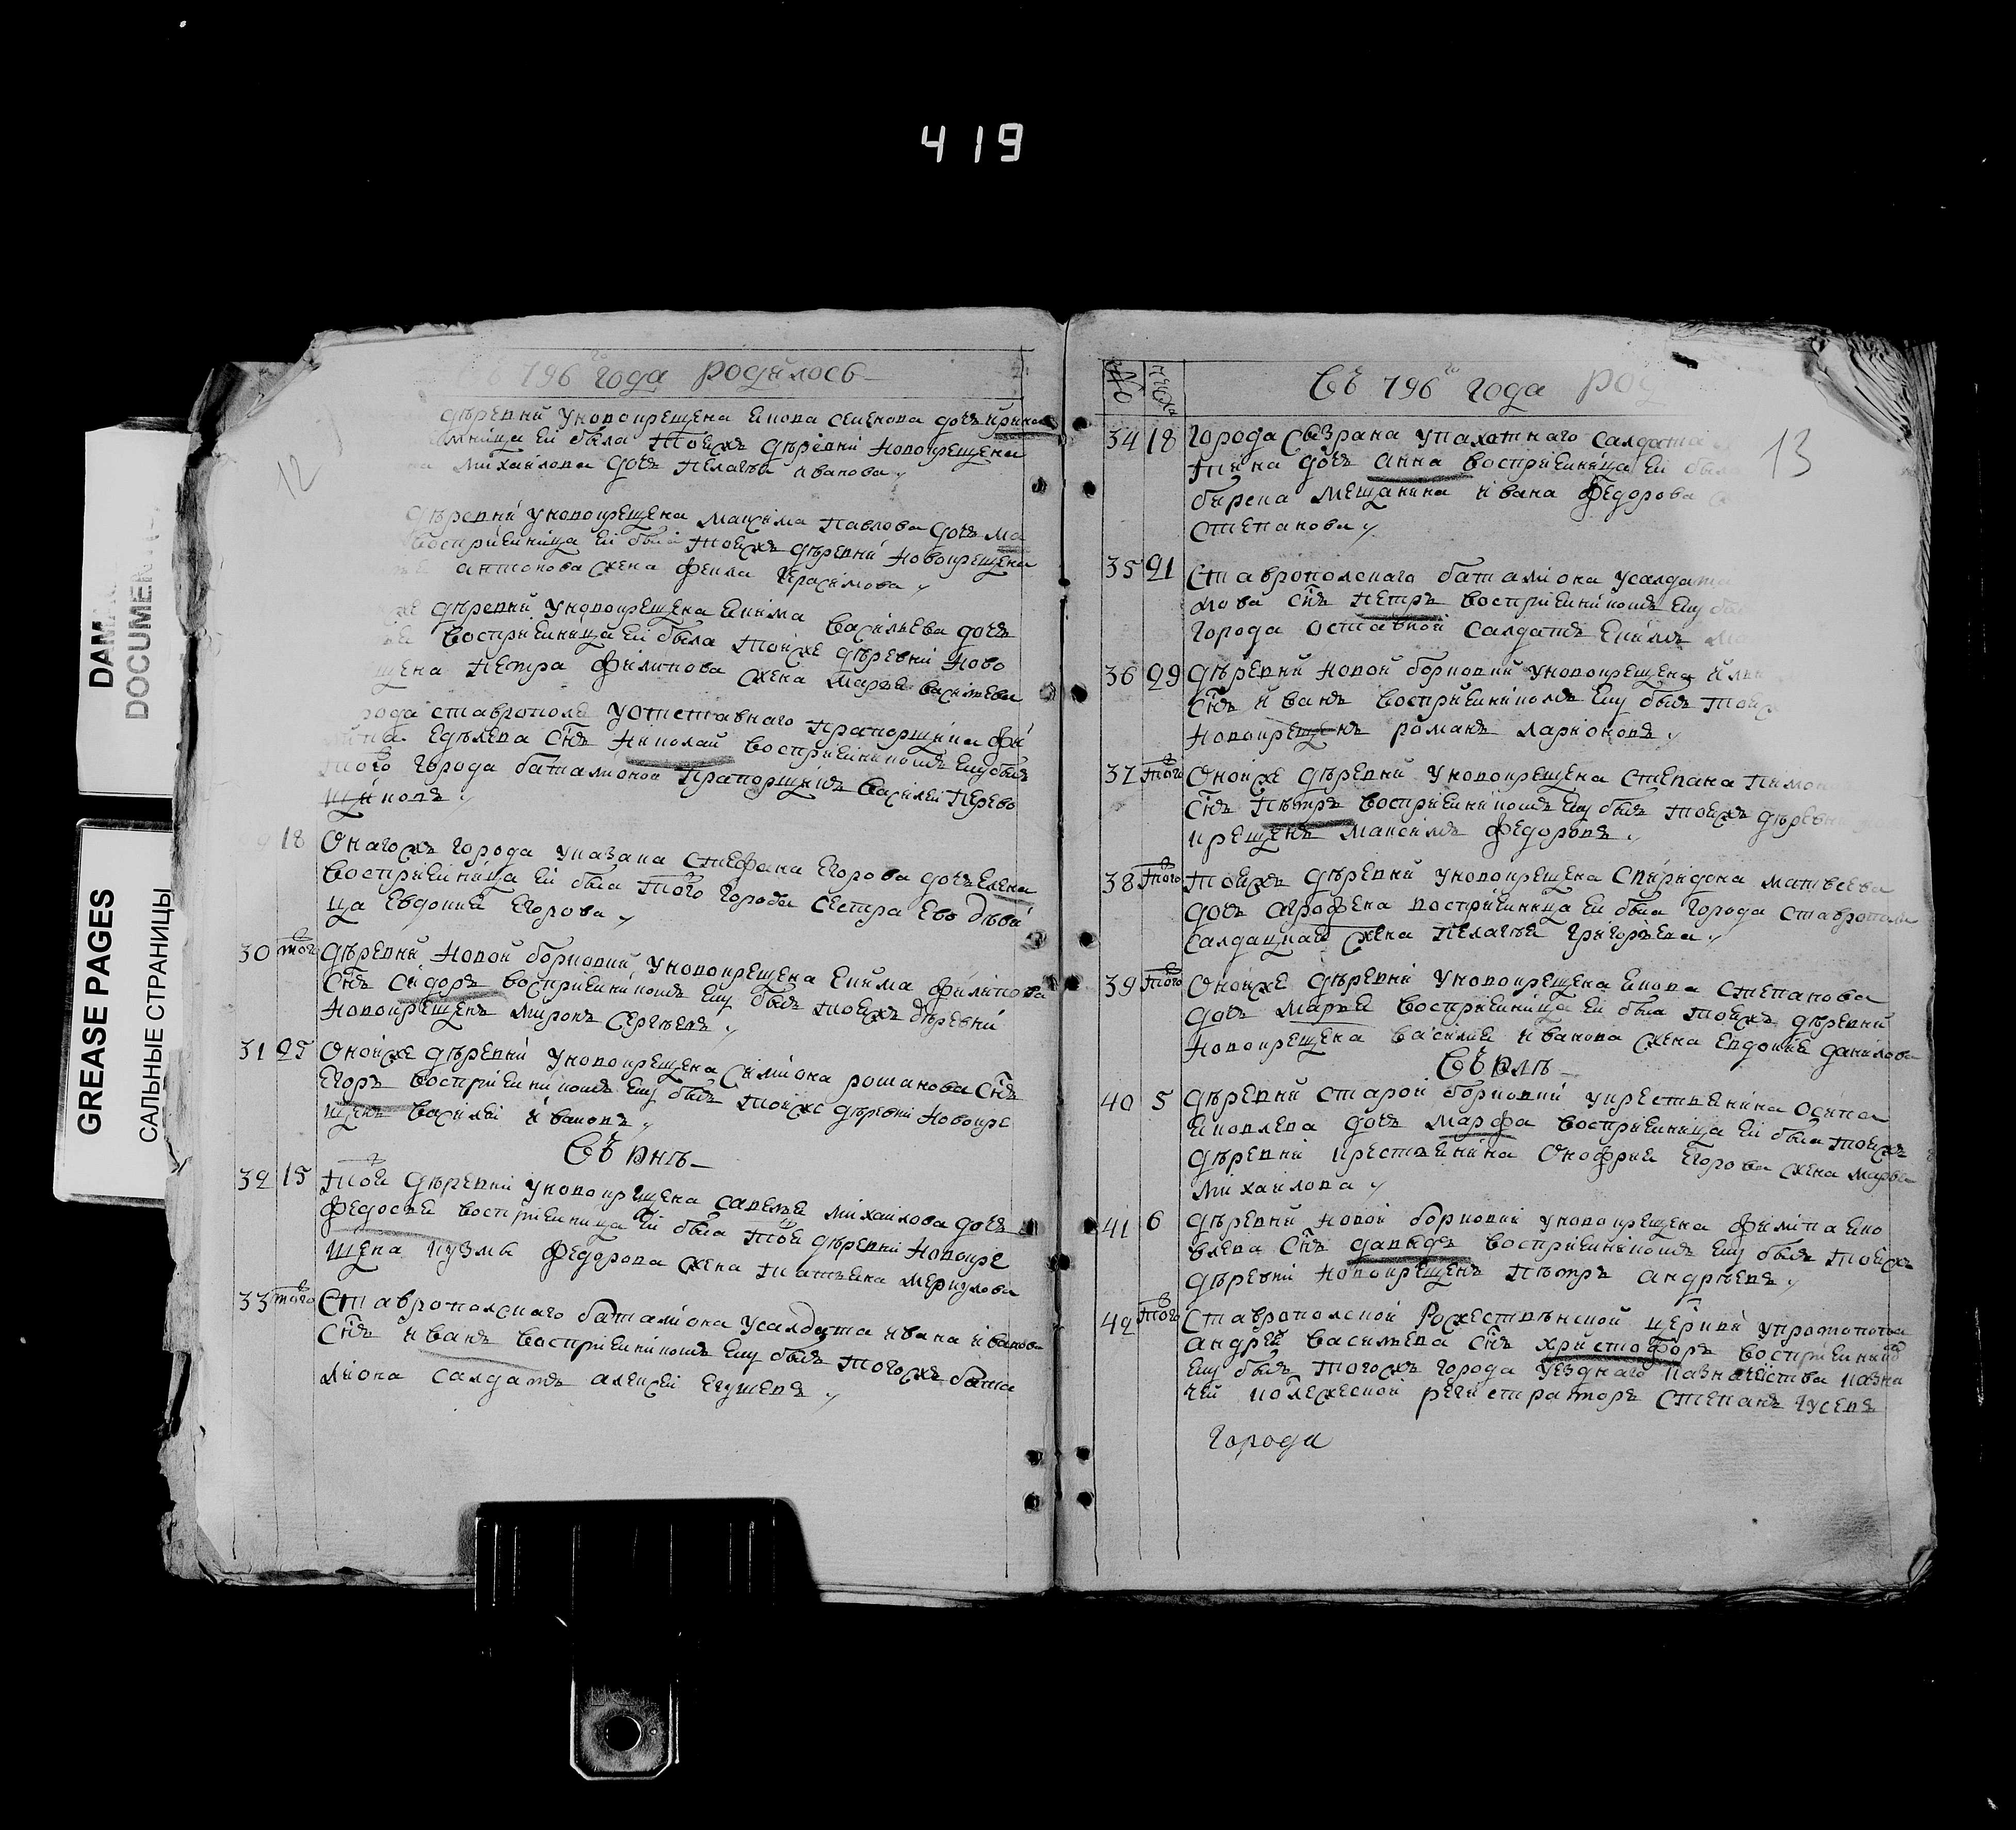 419
DOCUMEN
GREASE PAGES
САЛЬНЫЕ СТРАНИЦЫ
12
796го года родилось
деревни у новокрещена Якова Семенова дочь Ирина
мница ей была тоежъ деревни новокрещена
Михайлова дочь Пелагѣя Иванова
деревни у новокрещена Максима Павлова дочь Ма
восприемница ей была тоежъ деревни новокрещена
Антонова жена Фекла Герасимова
же деревни у новокрещена Екима Васильева дочь
восприемница ей была тойже деревни ново
щена Петра Филипова жена Марья Васильева
рода Ставрополя у отставнаго прапорщика Фи
снъ Николай восприемникомъ ему былъ
того города баталионой прапорщикъ Василей Перево
щиковъ
18 Онагожъ города у казака Стефана Егорова дочь Елена
восприемница ей была того города сестра ево дѣви
ца Евдокия Егорова
30 того Деревни Новой Борковки у новокрещена Екима Филипова
снъ Сидоръ восприемникомъ ему былъ тоежъ деревни
новокрещенъ Миронъ Сергѣевъ
31 25 Онойже деревни у новокрещена Симиона Романова снъ
Егоръ восприемникомъ ему былъ тойже деревни новокре
щенъ Василей Ивановъ
Въ юнѣ
32 15 Той деревни у новокрещена Савелья Михайлова дочь
Федосья восприемница ей была той деревни новокре
щена Кузмы Федорова жена Татьяна Меркулова
33 того Ставропольскаго баталиона у салдата Ивана Иванова
снъ Иванъ восприемникомъ ему былъ тогожъ бата
лиона салдатъ Алексей
13
№ число
Въ 796го года род
34 18 Города Сызрана у пахотнаго салдата
дочь Анна восприемница ей была
мещанина Ивана Федорова
Степанова
35 21 Ставропольскаго баталиона у салдата
мова снъ Петръ восприемникомъ ему бы
города оставной салдатъ Екимъ
36 29 Деревни Новой Борковки у новокрещена Ильи
снъ Иванъ восприемникомъ ему былъ тоеж
новокрещенъ Романъ Ларионовъ
37 того Онойже деревни у новокрещена Степана
снъ Петръ восприемникомъ ему былъ тоежъ деревни
крещенъ Максимъ Федоровъ
38 того Тоежъ деревни у новокрещена Спиридона Матвѣева
дочь Агрофена восприемница ей была города Ставропол
салдацкая жена Пелагѣя Григорьева
39 того Онойже деревни у новокрещена Якова Степанова
дочь Марья восприемница ей была тоежъ деревни
новокрещена Василия Иванова жена Евдокия Данилова
Въ юлѣ
40 5 Деревни Старой Борковки у крестьянина Осипа
Яковлева дочь Марфа восприемница ей была тоежъ
деревни крестьянина Онофрия Егорова жена Марья
Михайлова
41 6 Деревни Новой Борковки у новокрещена Филипа Яко
влева снъ Давыдъ восприемникомъ ему былъ тоежъ
деревни новокрещенъ Петръ Андрѣевъ
42 того Ставропольской Рожественской церкви у протопопа
Андрея Васильева снъ Христофоръ восприемнико
ему былъ тогожъ города уезднаго казначейства казна
чей колежской регистраторъ Степанъ Гусевъ
Города